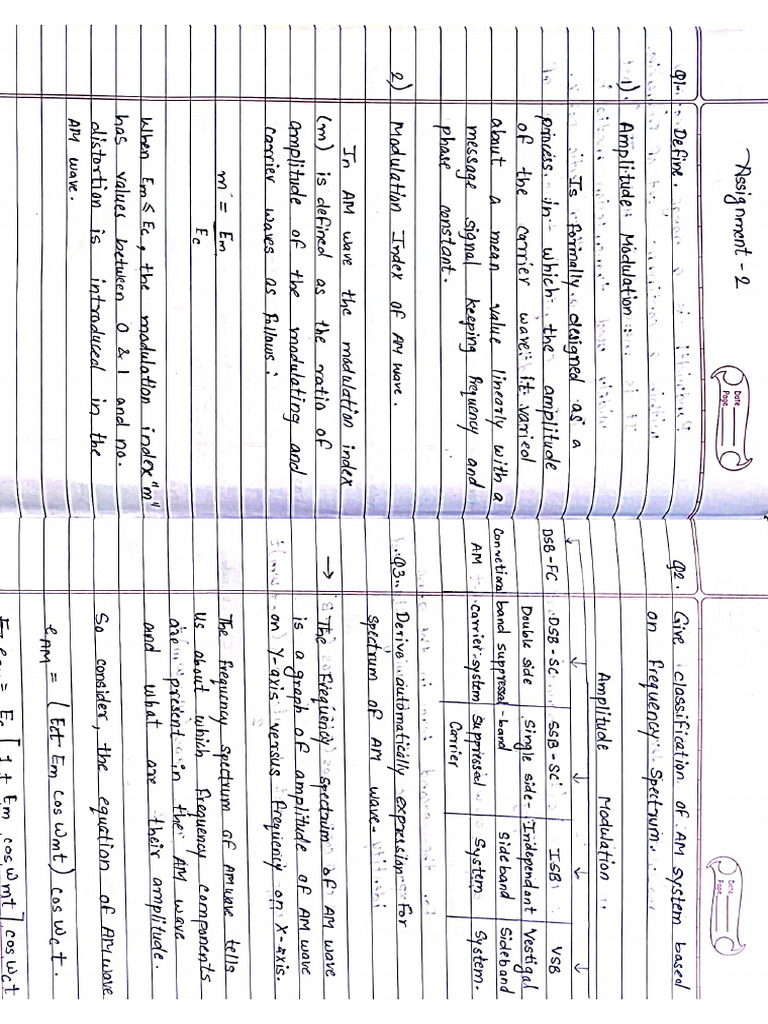 Assignment - 2
Date
Page
Q1. Define.
1) Amplitude Modulation
Is formally designed as a
process in which the amplitude
of the carrier wave it varied
about a mean value linearly with a
message signal keeping frequency and
phase constant.
2) Modulation Index of AM wave.
In AM wave the modulation index
(m) is defined as the ratio of
amplitude of the modulating and
carrier waves as follows:
m = Em
Ec
When Em ≤ Ec, the modulation index "m"
has values between 0 & 1 and no.
distortion is introduced in the
AM wave.
Date
Page
Q2. Give classification of AM system based
on frequency Spectrum.
Amplitude Modulation
DSB-FC DSB-SC SSB-SC ISB VSB
Convetional Double side Single side- Independant Vestigal
band suppressal -band Sideband Sideband
AM carrier-system Suppressal System System.
Carrier
Q3. Derive automatically expression For
spectrum of AM wave.
→ The Frequency spectrum of AM wave
is a graph of amplitude of AM wave
on Y-axis versus Frequency on X-axis.
The frequency spectrum of AM wave tells
Us about which frequency components
are present in the AM wave
and what are their amplitude.
So consider, the equation of AM wave
eAM = (Ec+ Em cos wmt) cos wct.
= Ec [1 + Em cos wmt] cos wct